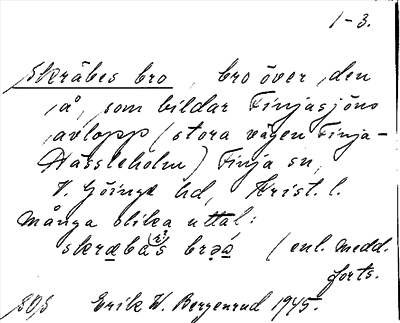 1-3.
Skräbes bro, bro över den
å, som bildar Finjasjöns
avlopp (stora vägen Finja-
Hässleholm) Finja sn,
V. Göinge hd, Krist. l.
Många olika uttal:
(enl. medd.
forts.
Erik W. Bergenrud 1945.